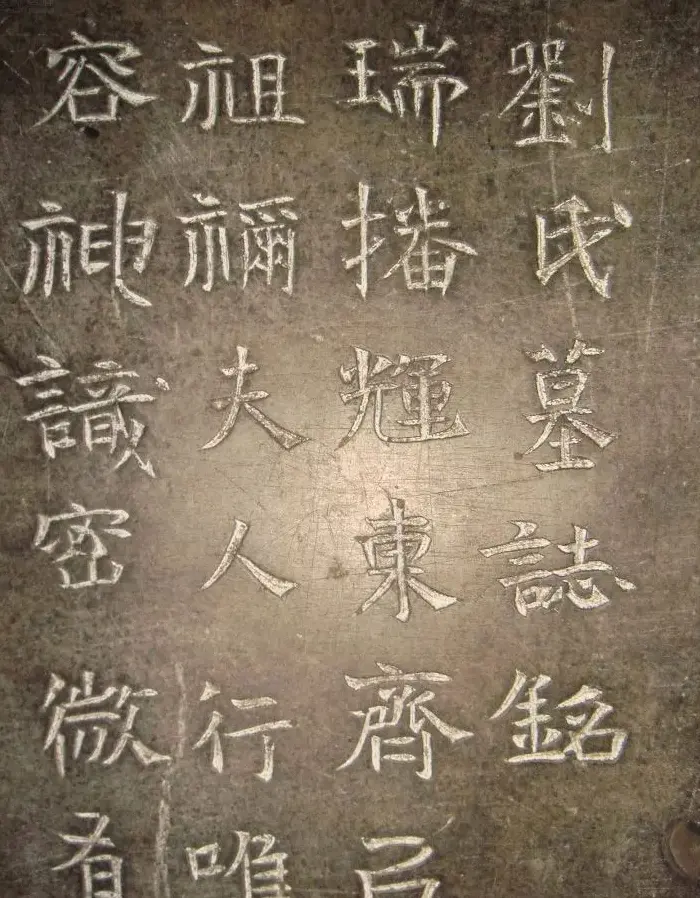 劉氏墓誌銘
瑞播輝東齊
祖禰夫人行唯
容神識密微